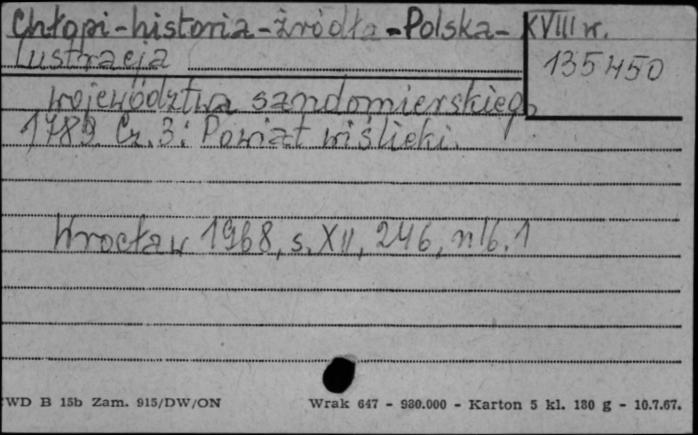 Chłopi-historia-źródła-Polska-XVIII w.
Lustracja
135450
województwa sandomierskiego
1789 Cz. 3: Powiat wiślicki.
Wrocław 1968, s. XII, 246, nlb. 1
WD B 15b Zam. 915/DW/ON
Wrak 647 - 980.000 - Karton 5 kl. 180 g - 10.7.67.